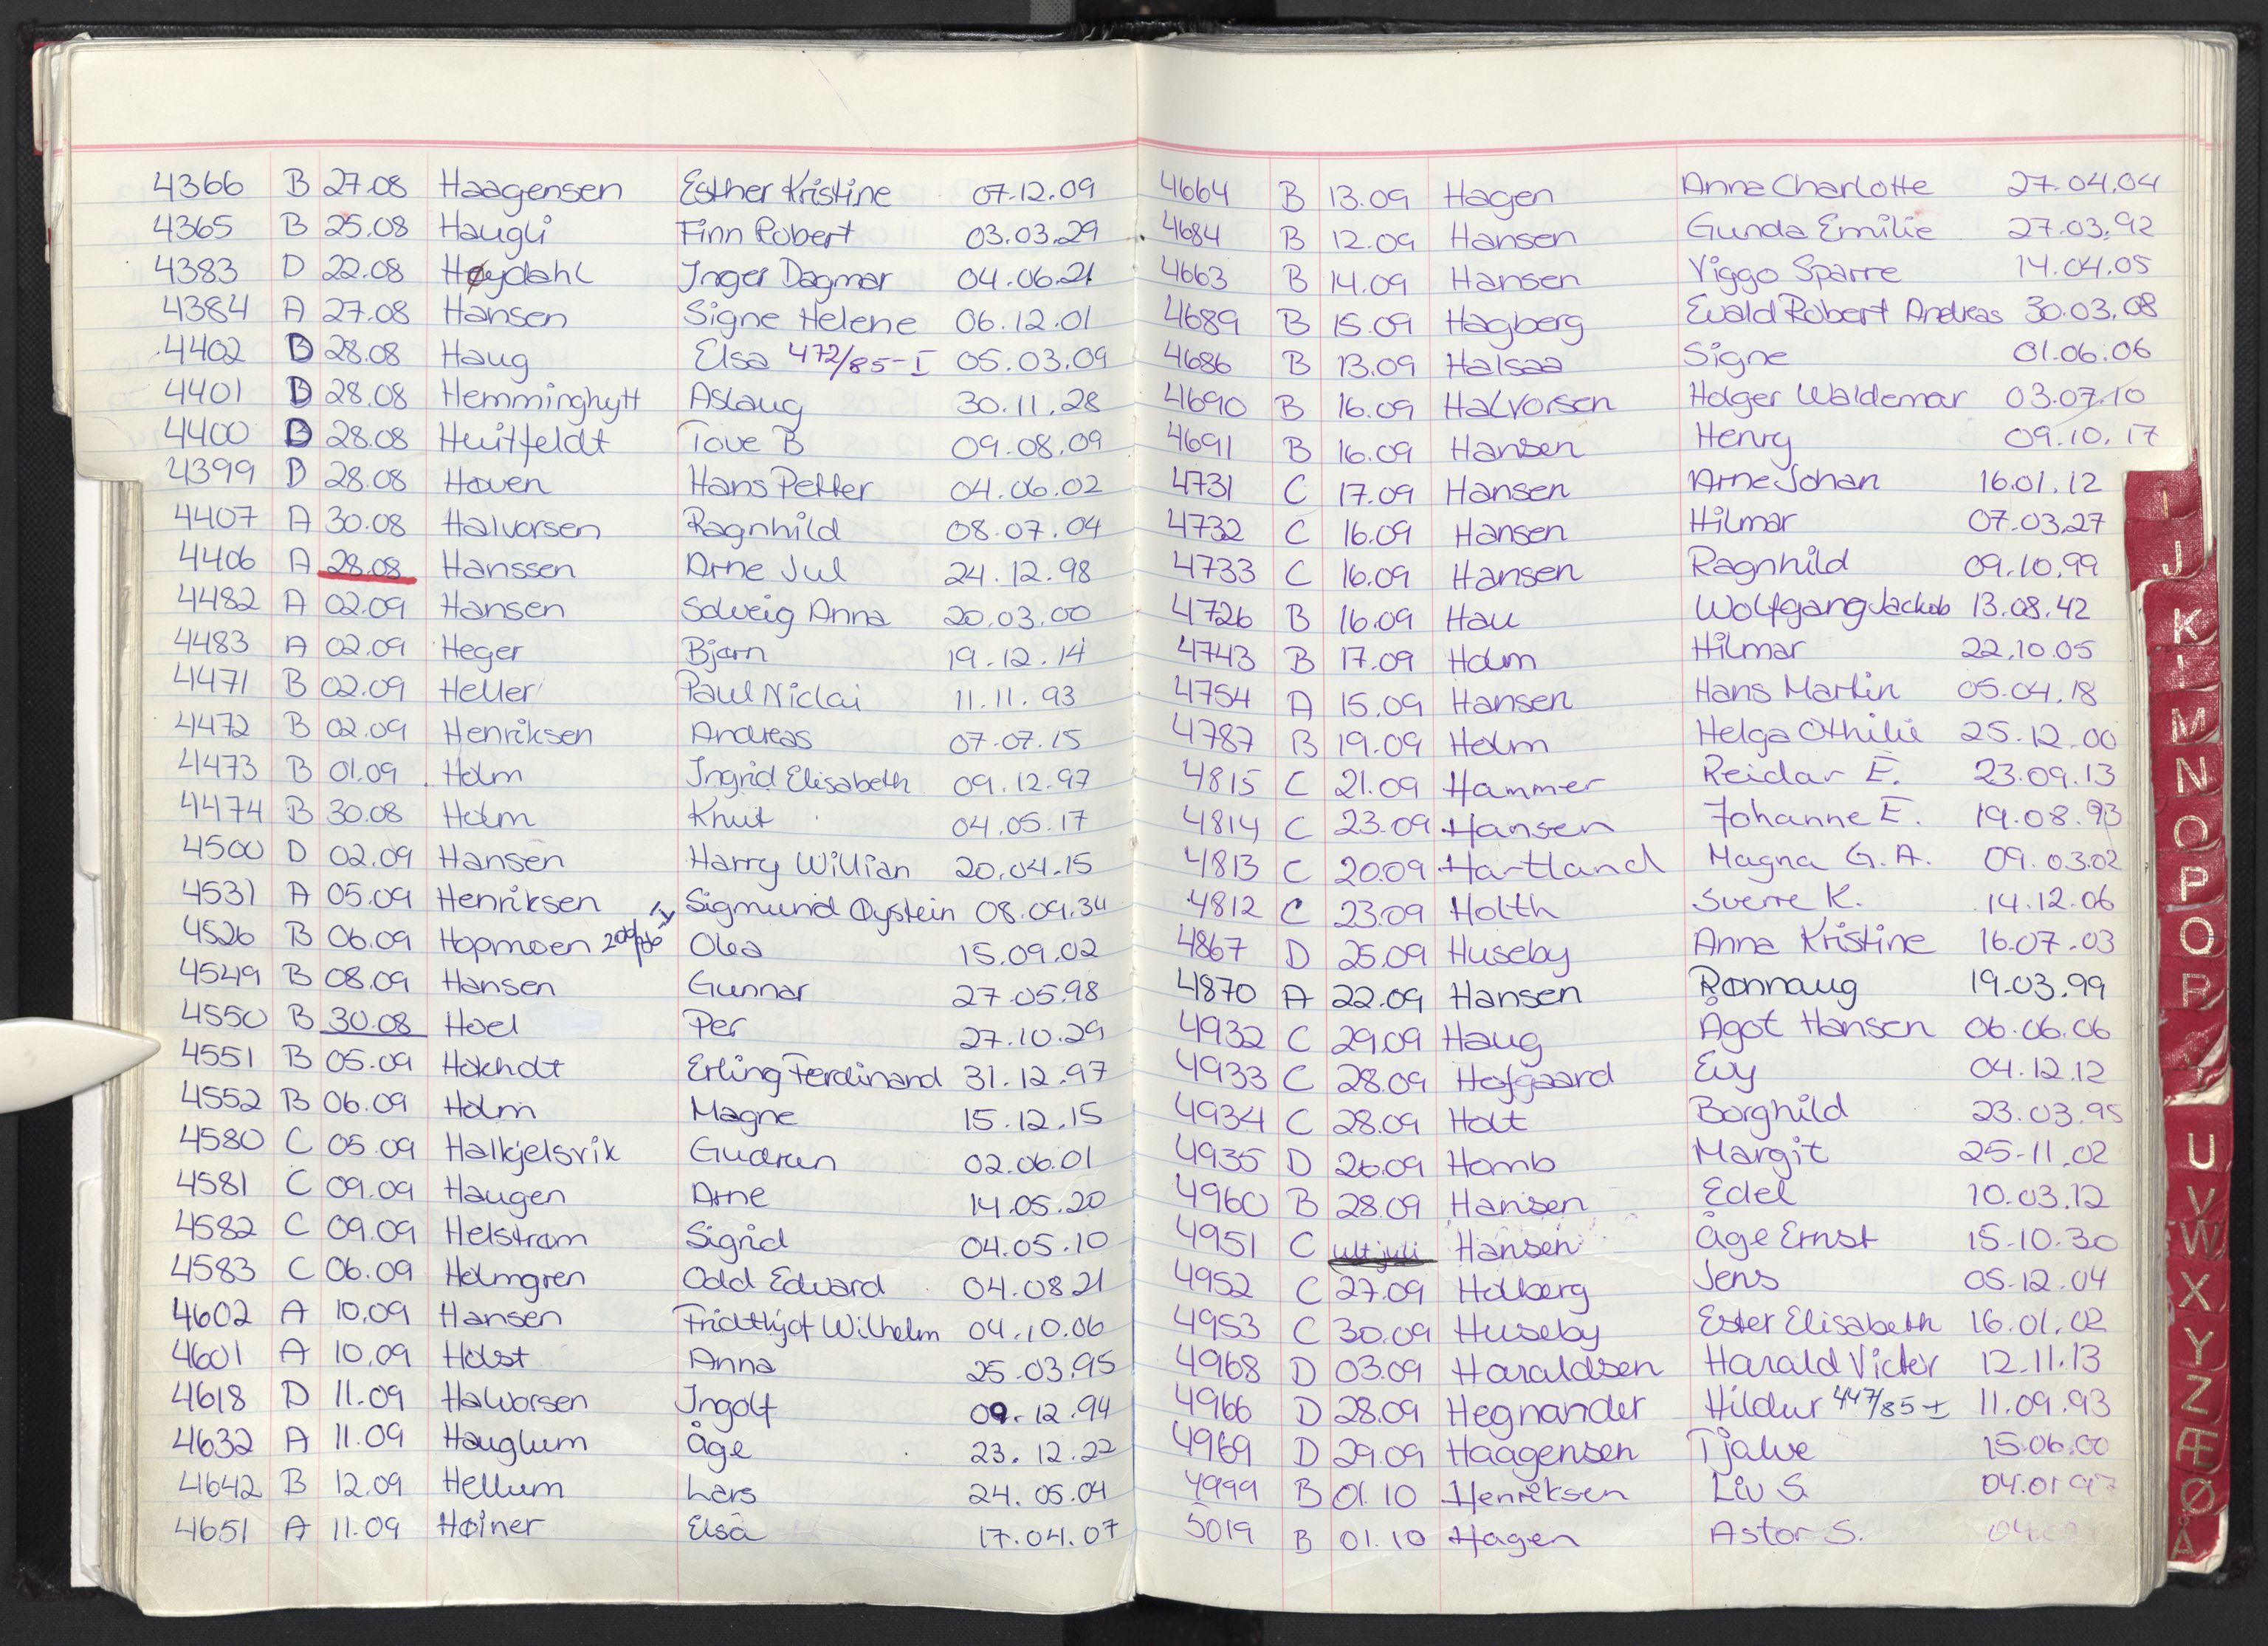 4366 B 27.08 Haagensen Esther Kristine 07.12.09
4365 B 25.08 Haugli Finn Robert 03.03.29
4383 D 22.08 Høydahl Inger Dagmar 04.06.21
4384 A 27.08 Hansen Signe Helene 06.12.01
4402 B 28.08 Haug Elsa 472/85-I 05.03.09
4401 B 28.08 Hemminghytt Aslaug 30.11.28
4400 B 28.08 Huitfeldt Tove B 09.08.09
4399 D 28.08 Hoven Hans Petter 04.06.02
4407 A 30.08 Halvorsen Ragnhild 08.07.04
4406 A 28.08 Hanssen Arne Jul 24.12.98
4482 A 02.09 Hansen Solveig Anna 20.03.00
4483 A 02.09 Heger Bjørn 19.12.14
4471 B 02.09 Heller Paul Niclai 11.11.93
4472 B 02.09 Henriksen Andreas 07.07.15
4473 B 01.09 Holm Ingrid Elisabeth 09.12.97
4474 B 30.08 Holm Knut 04.05.17
4500 D 02.09 Hansen Harry Willian 20.04.15
4531 A 05.09 Henriksen Sigmund Øystein 08.09.34
4526 B 06.09 Hopmoen Olea 15.09.02
4549 B 08.09 Hansen Gunnar 27.05.98
4550 B 30.08 Hoel Per 27.10.29
4551 B 05.09 Hokholt Erling Ferdinand 31.12.97
4552 B 06.09 Holm Magne 15.12.15
4580 C 05.09 Halkjelsvik Gudrun 02.06.01
4581 C 09.09 Haugen Arne 14.05.20
4582 C 09.09 Helstrøm Sigrid 04.05.10
4583 C 06.09 Holmgren Odd Edvard 04.08.21
4602 A 10.09 Hansen Fridthjof Wilhelm 04.10.06
4601 A 10.09 Holst Anna 25.03.95
4618 D 11.09 Halvorsen Ingolf 09.12.94
4632 A 11.09 Hauglum Åge 23.12.22
4642 B 12.09 Hellum Lars 24.05.04
4651 A 11.09 Høiner Elsa 17.04.07
4664 B 13.09 Hagen Anna Charlotte 27.04.04
4684 B 12.09 Hansen Gunda Emilie 27.03.92
4663 B 14.09 Hansen Viggo Sparre 14.04.05
4689 B 15.09 Hagberg Evald Robert Andreas 30.03.08
4686 B 13.09 Halsaa Signe 01.06.06
4690 B 16.09 Halvorsen Holger Waldemar 03.07.10
4691 B 16.09 Hansen Henry 09.10.17
4731 C 17.09 Hansen Arne Johan 16.01.12
4732 C 16.09 Hansen Hilmar 07.03.27
4733 C 16.09 Hansen Ragnhild 09.10.99
4726 B 16.09 Hau Wolfgang Jackob 13.08.42
4743 B 17.09 Holm Hilmar 22.10.05
4754 A 15.09 Hansen Hans Martin 05.04.18
4787 B 19.09 Holm Helga Othilie 25.12.00
4815 C 21.09 Hammer Reidar E. 23.09.13
4814 C 23.09 Hansen Johanne E. 19.08.93
4813 C 20.09 Hartland Magna G. A. 09.03.02
4812 C 23.09 Holth Sverre K. 14.12.06
4867 D 25.09 Huseby Anna Kristine 16.07.03
4870 A 22.09 Hansen Rønnaug 19.03.99
4932 C 29.09 Haug Ågot Hansen 06.06.06
4933 C 28.09 Hofgaard Evy 04.12.12
4934 C 28.09 Holt Borghild 23.03.95
4935 D 26.09 Homb Margit 25.11.02
4960 B 28.09 Hansen Edel 10.03.12
4951 C ult juli Hansen Åge Ernst 15.10.30
4952 C 27.09 Holberg Jens 05.12.04
4953 C 30.09 Huseby Ester Elisabeth 16.01.02
4968 D 03.09 Haraldsen Harald Victor 12.11.13
4966 D 28.09 Hegnander Hildur 447/85-I 11.09.93
4969 D 29.09 Haagensen Tjalve 15.06.00
4999 B 01.10 Henriksen Liv S. 04.01.97
5019 B 01.10 Hagen Astor S. 04.
I
J
K
M
N
O
P
Q
R
U
V
W
X
Y
Z
Æ
Ø
Å